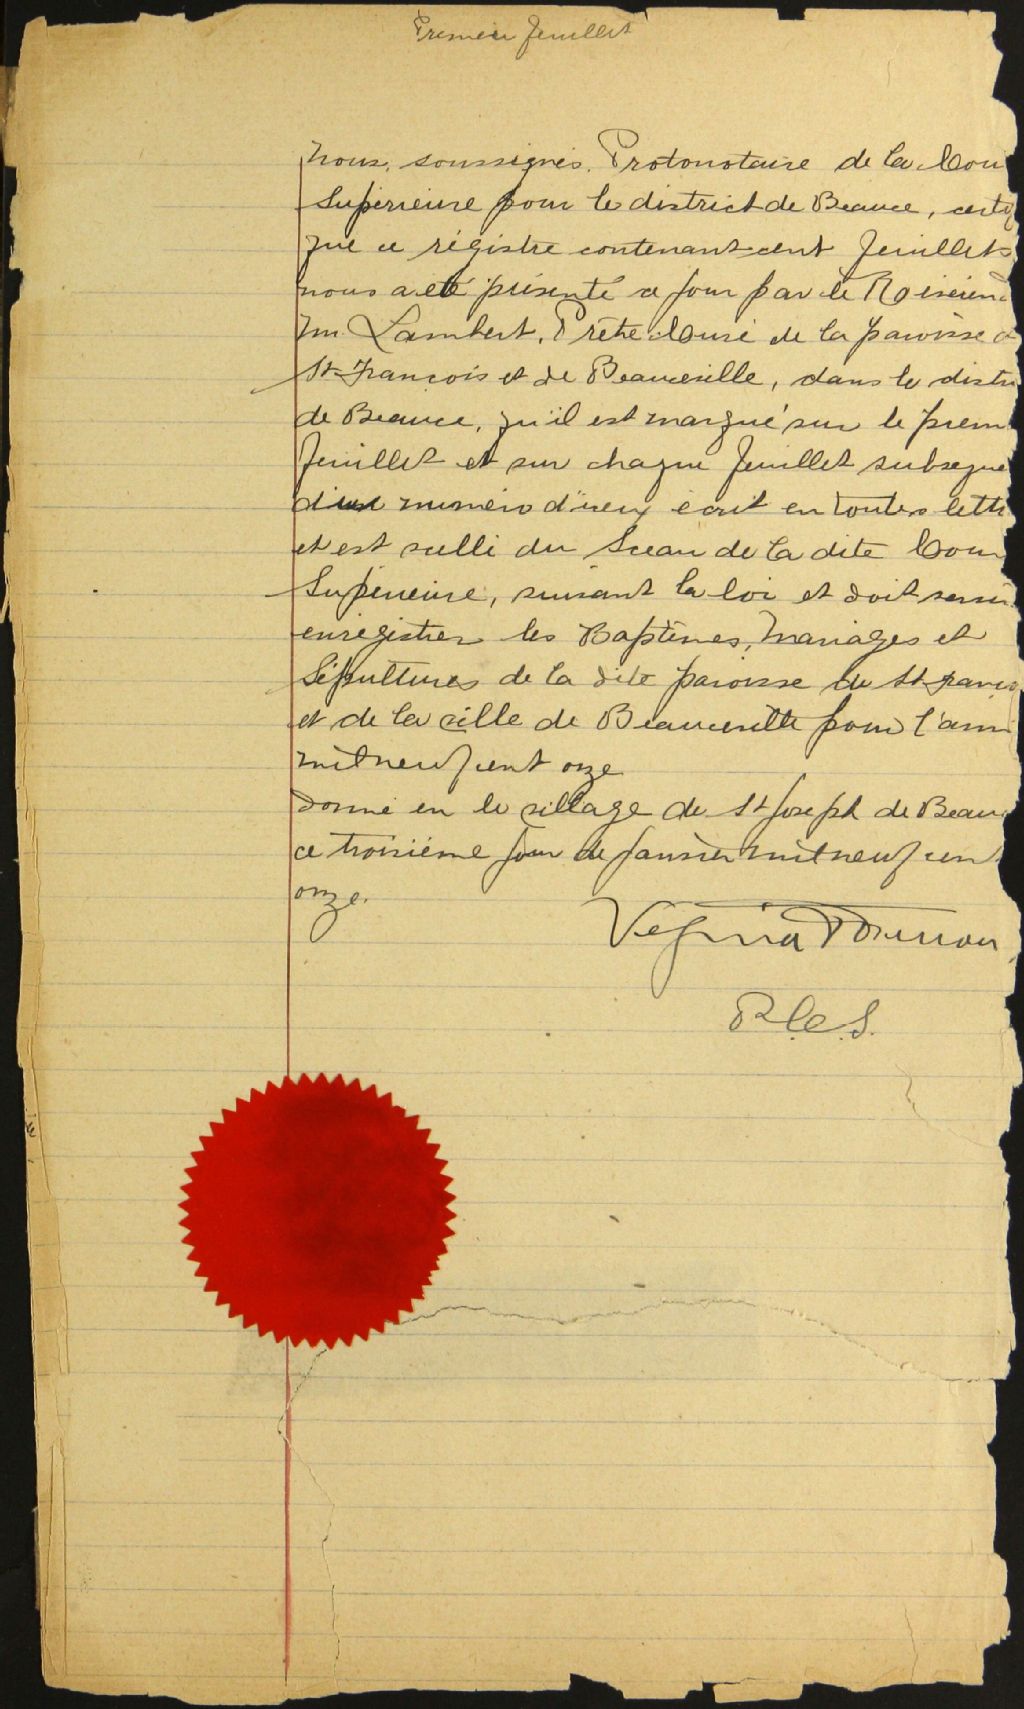 Premier feuillet
Nous, soussignés, Protonotaire de la Cour
Supérieure pour le district de Beauce, certif
que ce régistre contenant cent feuillets
nous a été présenté ce jour par le Révérend
M. Lambert, Prêtre Curé de la paroisse d
St-François et de Beauceville, dans le distri
de Beauce, qu'il est marqué sur le prem
feuillet et sur chaque feuillet subseque
d'un numéro d'iceux écrit en toutes lettr
et est scellé du Sceau de la dite Cour
Supérieure, suivant la loi et doit servir
enrégistrer les Baptêmes, Mariages et
Sépultures de la dite paroisse de St-Franço
et de la ville de Beauceville pour l'ann
mil neuf cent onze
Donné en le village de St Joseph de Beauc
ce troisième jour de janvier mil neuf cent
onze.
P.C.S.